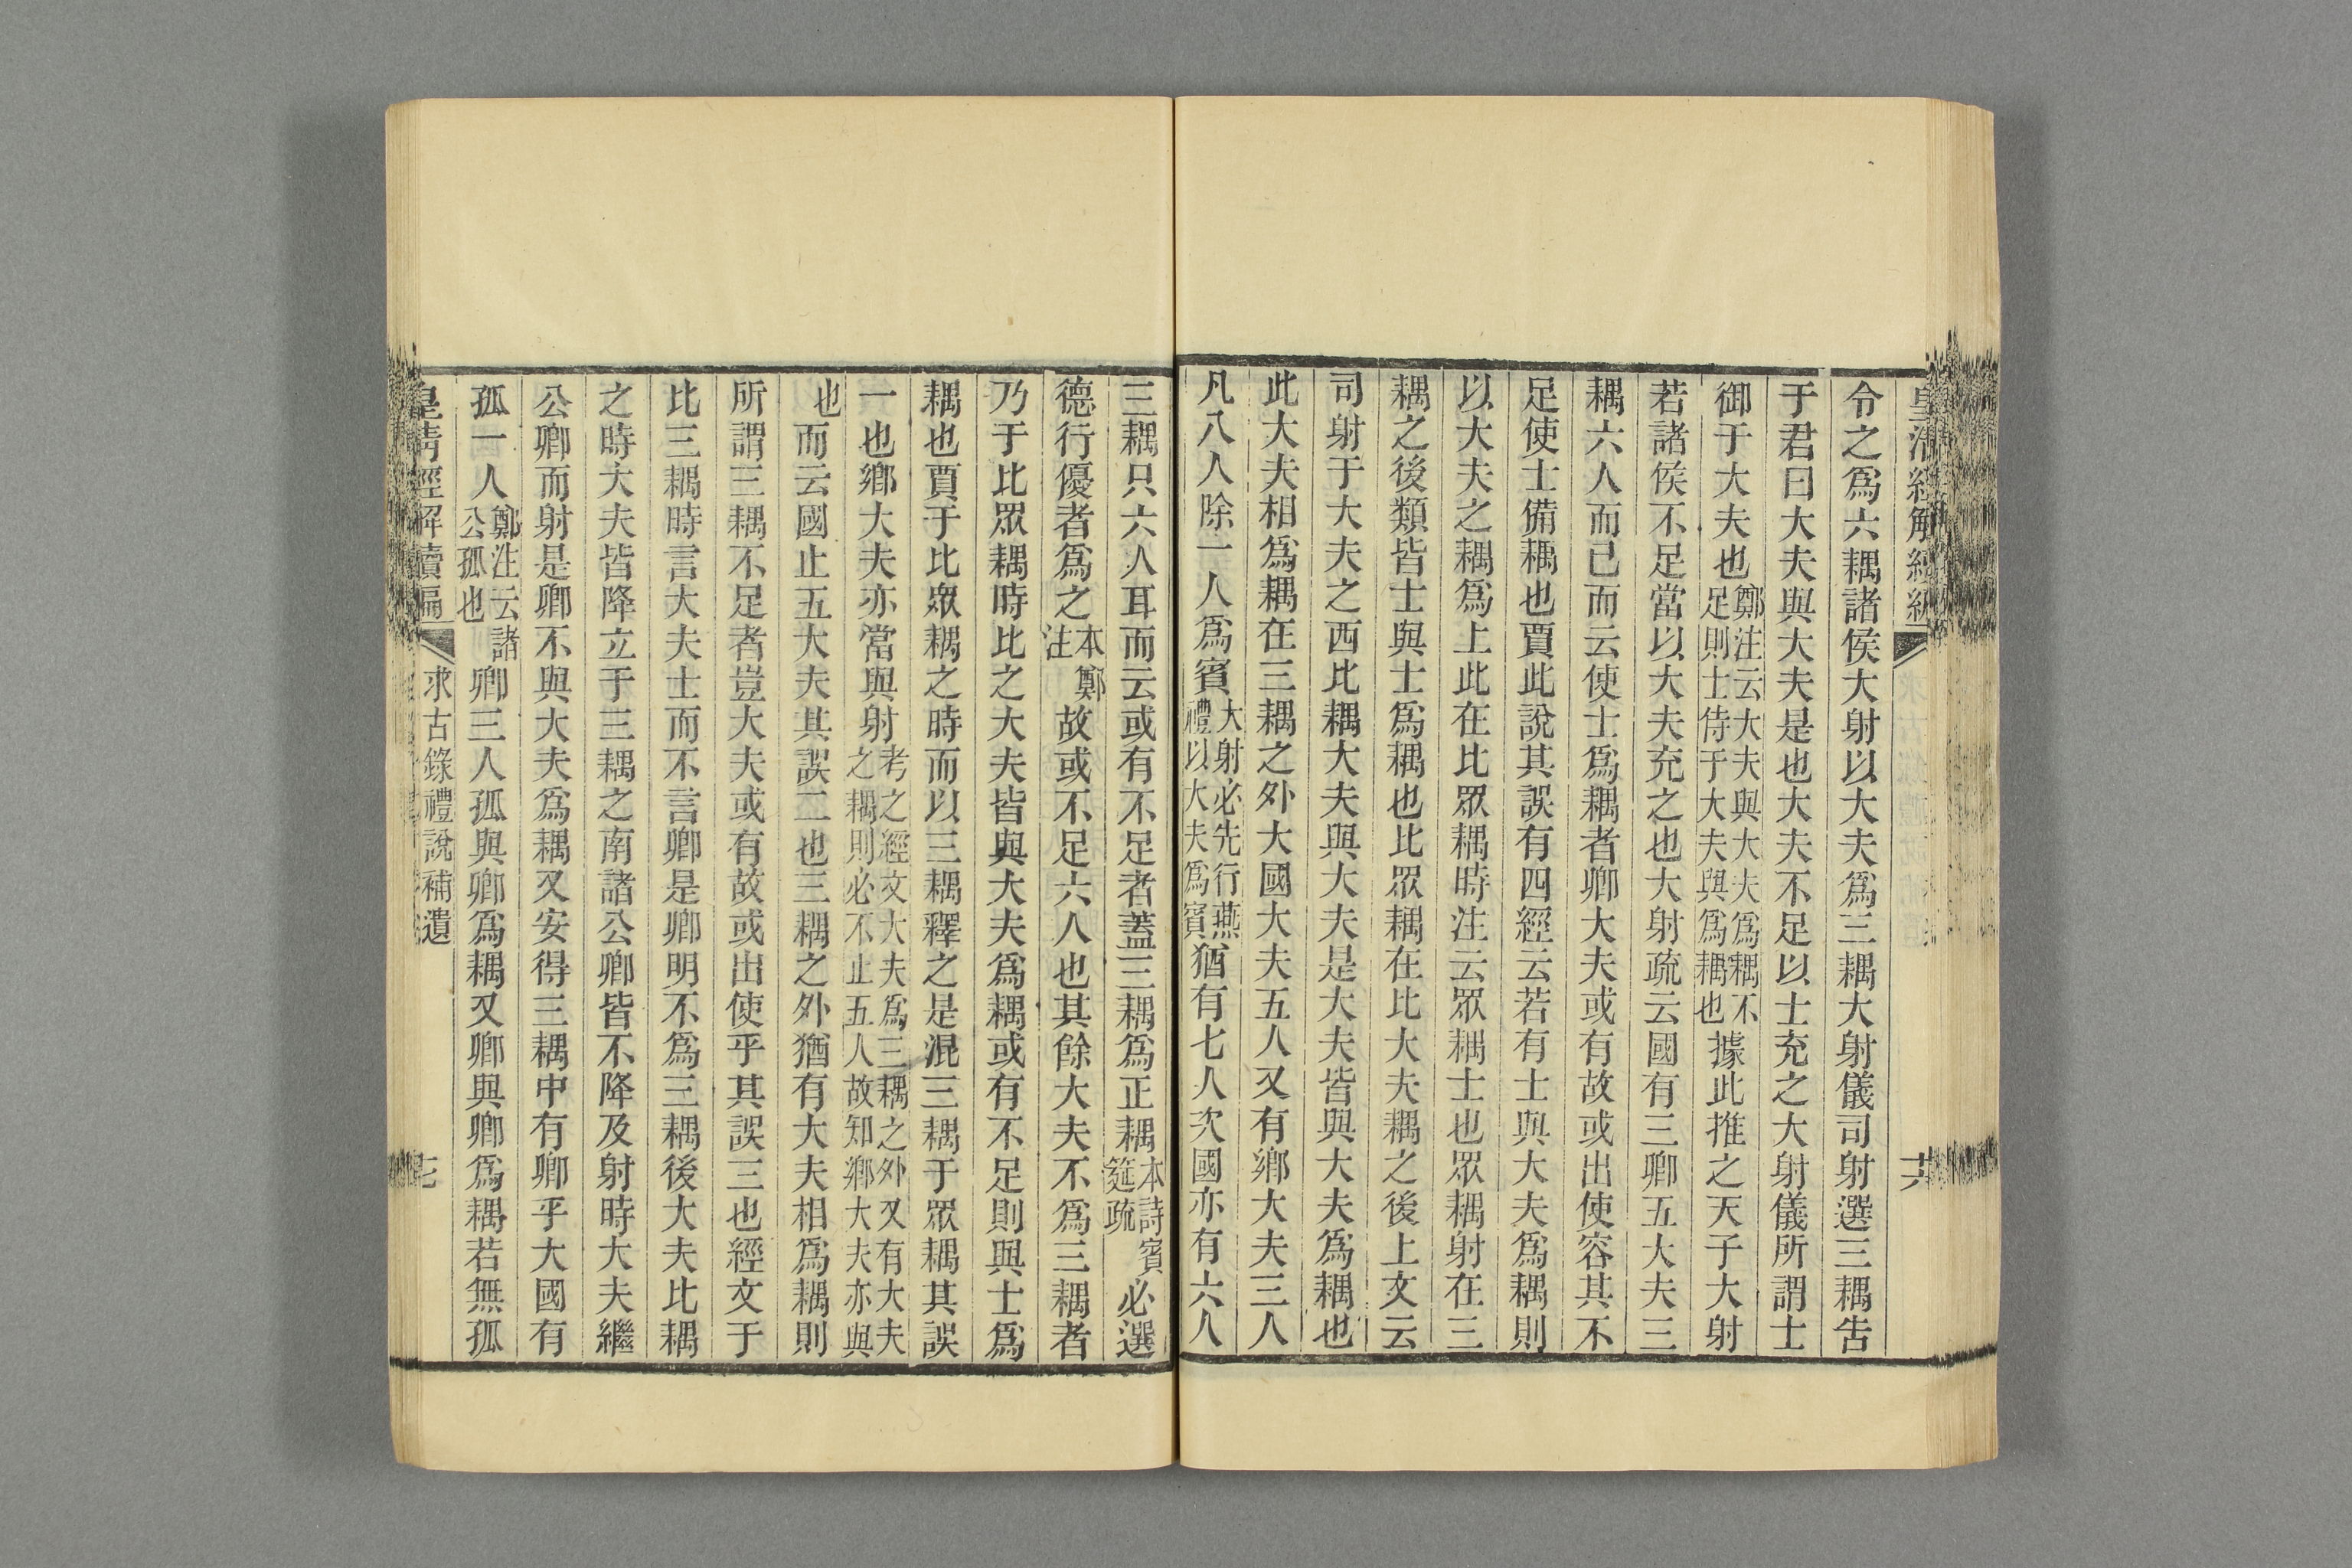 令之爲六耦諸侯大射以大夫爲三耦大射儀司射選三耦告
于君曰大夫與大夫是也大夫不足以士充之大射儀所謂士
御于大夫也鄭注云大夫與大夫爲耦不足則士侍于大夫與爲耦也據此推之天子大射
若諸侯不足當以大夫充之也大射疏云國有三卿五大夫三
耦六人而已而云使士爲耦者卿大夫或有故或出使容其不
足使士備耦也賈此說其誤有四經云若有士與大夫爲耦則
以大夫之耦爲上此在比眾耦時注云眾耦士也眾耦射在三
耦之後類皆士與士爲耦也比眾耦在比大夫耦之後上文云
司射于大夫之西比耦大夫與大夫是大夫皆與大夫爲耦也
此大夫相爲耦在三耦之外大國大夫五人又有鄉大夫三人
凡八人除一人爲賓大射必先行燕禮以大夫爲賓猶有七人次國亦有六人
三耦只六人耳而云或有不足者蓋三耦爲正耦本詩賓筵疏必選
德行優者爲之本鄭注故或不足六人也其餘大夫不爲三耦者
乃于比眾耦時比之大夫皆與大夫爲耦或有不足則與士爲
耦也賈于比眾耦之時而以三耦釋之是混三耦于眾耦其誤
一也鄉大夫亦當與射考之經文大夫爲三耦之外又有大夫之耦則必不止五人故知鄉大夫亦與
也而云國止五大夫其誤二也三耦之外猶有大夫相爲耦則
所謂三耦不足者豈大夫或有故或出使乎其誤三也經文于
比三耦時言大夫士而不言卿是卿明不爲三耦後大夫比耦
之時大夫皆降立于三耦之南諸公卿皆不降及射時大夫繼
公卿而射是卿不與大夫爲耦又安得三耦中有卿乎大國有
孤一人鄭注云諸公孤也卿三人孤與卿爲耦又卿與卿爲耦若無孤
皇清經解續編
求古錄禮說補遺